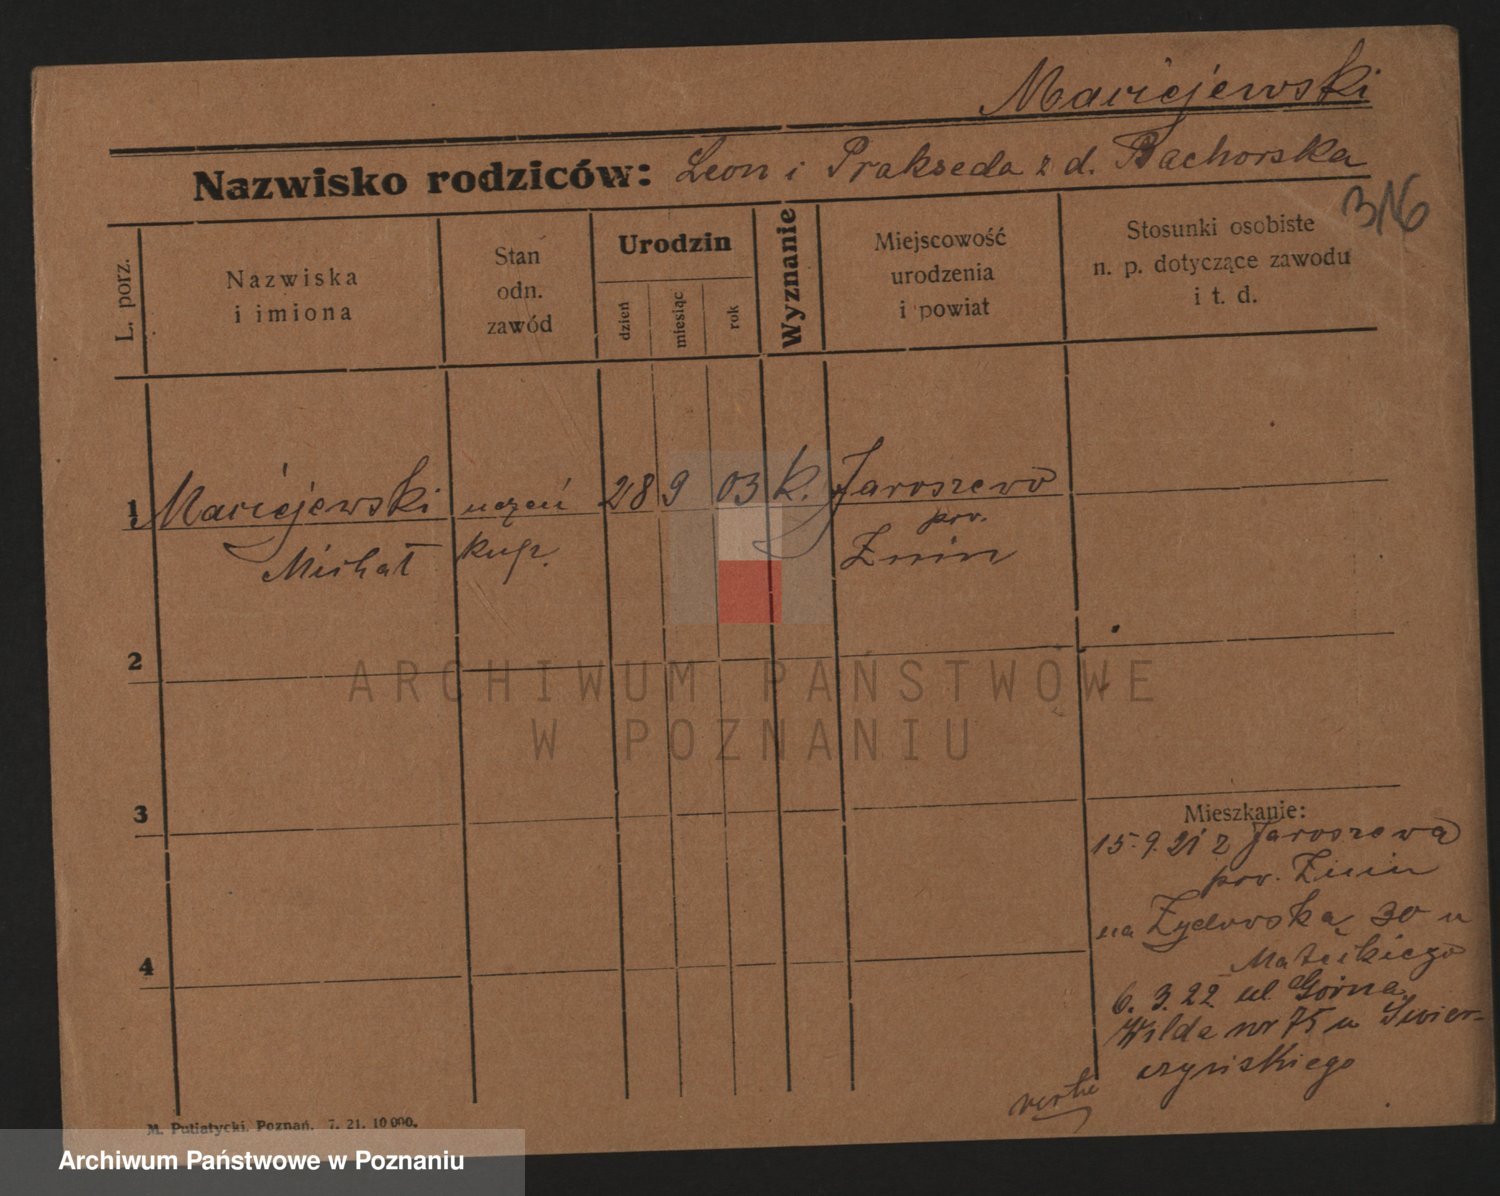 Maciejewski
Nazwisko rodziców: Leon i Prakseda z d. Bachorska
316
L. porz.
Nazwiska
i imiona
Stan
odn.
zawód
Urodzin
dzień
miesiąc
rok
Wyznanie
Miejscowość
urodzenia
i powiat
Stosunki osobiste
n. p. dotyczące zawodu
i t. d.
1 Maciejewski uczeń 28 9 03 k. Jaroszewo
Michał kup. pow.
Żnin
2
3
4
Mieszkanie:
15.9.21 z Jaroszewa
pow. Żnin
na Żydowską 30 u
6.3.22 ul. Górna
Wilda nr 75 u Świer-
czyńskiego
verte
M. Putiatycki, Poznań. 7. 21. 10 000.
ARCHIWUM PAŃSTWOWE
W POZNANIU
Archiwum Państwowe w Poznaniu